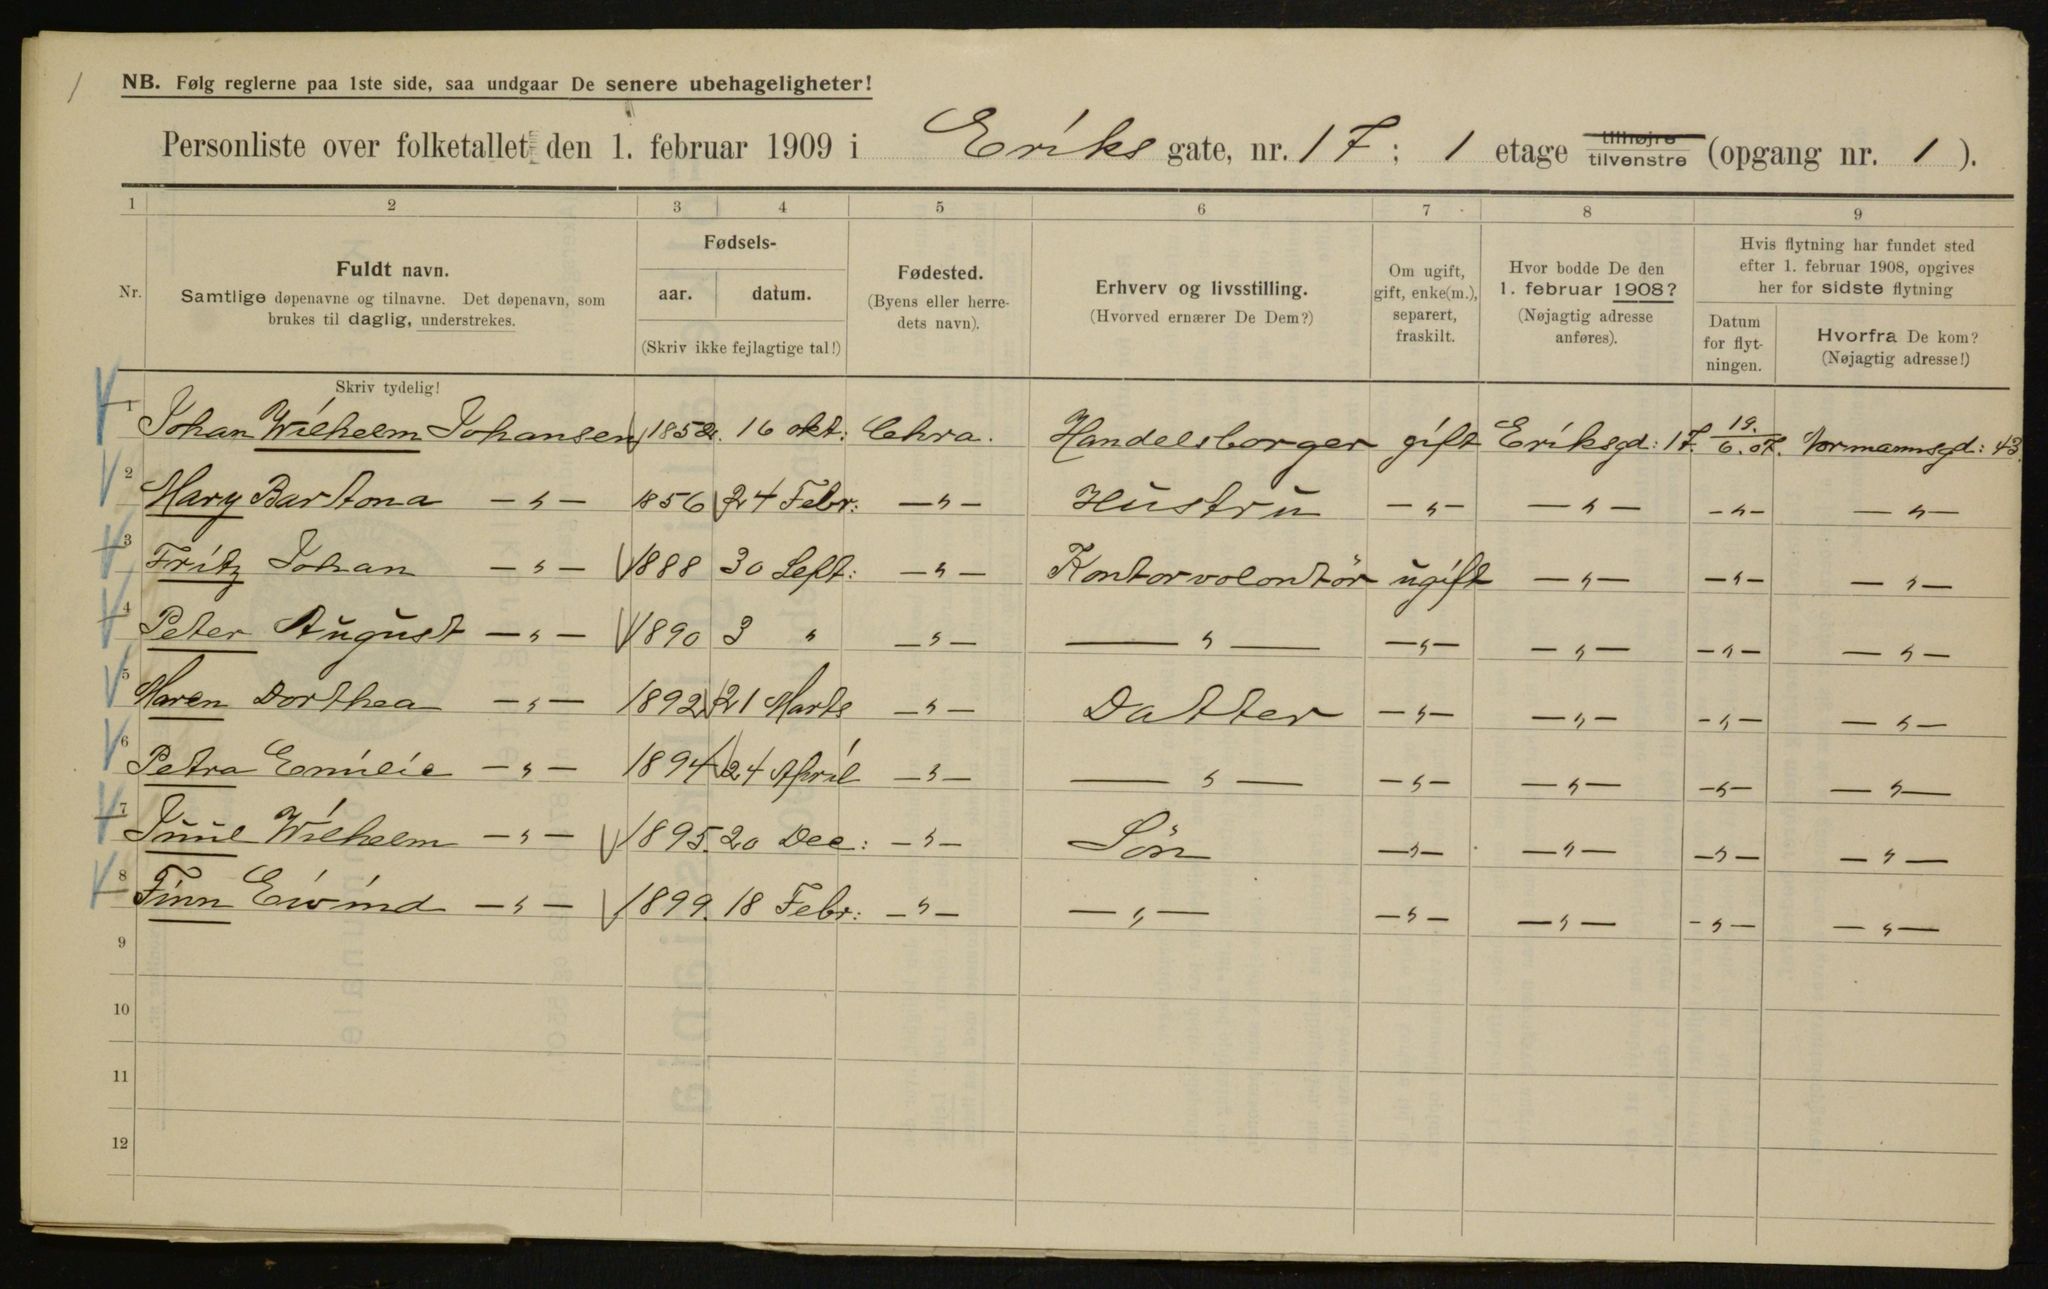 1
NB. Følg reglerne paa 1ste side, saa undgaar De senere ubehageligheter!
Personliste over folketallet den 1. februar 1909 i Eriks gate, nr. 17; 1 etage tilhøjre tilvenstre (opgang nr. 1).
1 2 3 4 5 6 7 8 9
Nr. Fuldt navn. Samtlige døpenavne og tilnavne. Det døpenavn, som brukes til daglig, understrekes. Skriv tydelig!
Fødsels- aar. datum. (Skriv ikke fejlagtige tal!)
Fødested. (Byens eller herredets navn).
Erhverv og livsstilling. (Hvorved ernærer De Dem?)
Om ugift, gift, enke(m.), separert, fraskilt.
Hvor bodde De den 1. februar 1908? (Nøjagtig adresse anføres).
Hvis flytning har fundet sted efter 1. februar 1908, opgives her for sidste flytning
Datum for flytningen. Hvorfra De kom? (Nøjagtig adresse!)
1 Johan Wilhelm Johansen 1852. 16 okt: Chra. Handelsborger gift Eriksgd: 17. 19./6. 07. Normannsgd: 43.
2 Mary Bartona — " — 1856 24 Febr: — " — Hustru — " — — " — — " — — " —
3 Fritz Johan — " — 1888 30 Sept: — " — Kontorvolontör ugift — " — — " — — " —
4 Peter August — " — 1890 3 " — " — — " — — " — — " — — " — — " —
5 Maren Dorthea — " — 1892 21 Marts — " — Datter — " — — " — — " — — " —
6 Petra Emilie — " — 1894 24 April — " — — " — — " — — " — — " — — " —
7 Juul Wilhelm — " — 1895. 20 Dec: — " — Sön — " — — " — — " — — " —
8 Finn Eivind — " — 1899. 18 Febr: — " — — " — — " — — " — — " — — " —
9
10
11
12